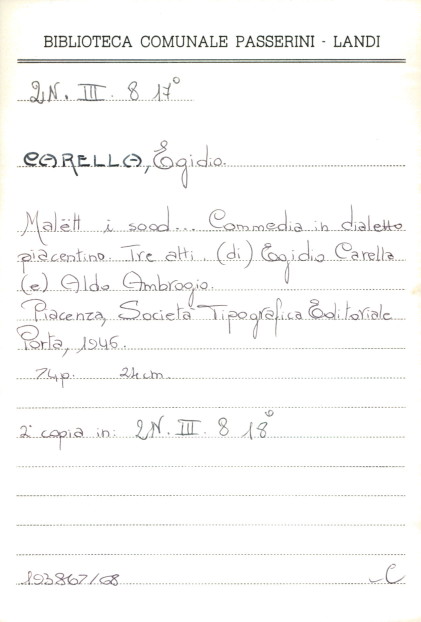 BIBLIOTECA COMUNALE PASSERINI - LANDI
2N. III. 8 17°
CARELLA, Egidio.
Malëtt i sood... Commedia in dialetto
piacentino. Tre atti. (di) Egidio Carella
(e) Aldo Ambrogio.
Piacenza, Società Tipografica Editoriale
Porta, 1946.
74p. 24cm.
2ª copia in: 2N. III. 8 18°
193867/68 C